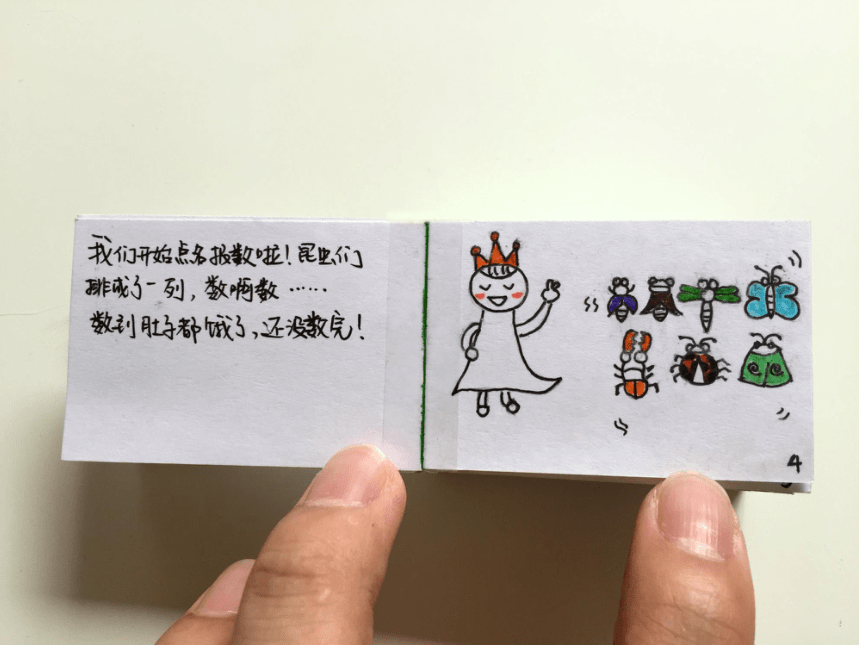 我们开始点名报数啦！昆虫们
排成了一列，数啊数……
数到肚子都饿了，还没数完！
4